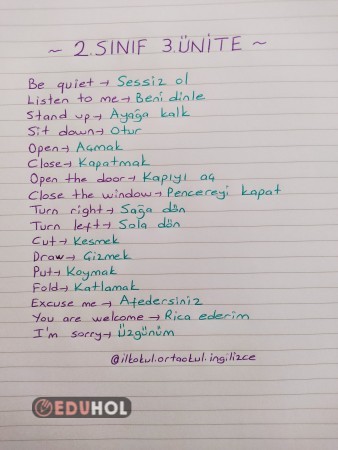 ~ 2.SINIF 3.ÜNİTE ~
Be quiet → Sessiz ol
Listen to me → Beni dinle
Stand up → Ayağa kalk
Sit down → Otur
Open → Açmak
Close → Kapatmak
Open the door → Kapıyı aç
Close the window → Pencereyi kapat
Turn right → Sağa dön
Turn left → Sola dön
Cut → Kesmek
Draw → Çizmek
Put → Koymak
Fold → Katlamak
Excuse me → Afedersiniz
You are welcome → Rica ederim
I'm sorry → Üzgünüm
@ilkokul.ortaokul.ingilizce
EDUHOL